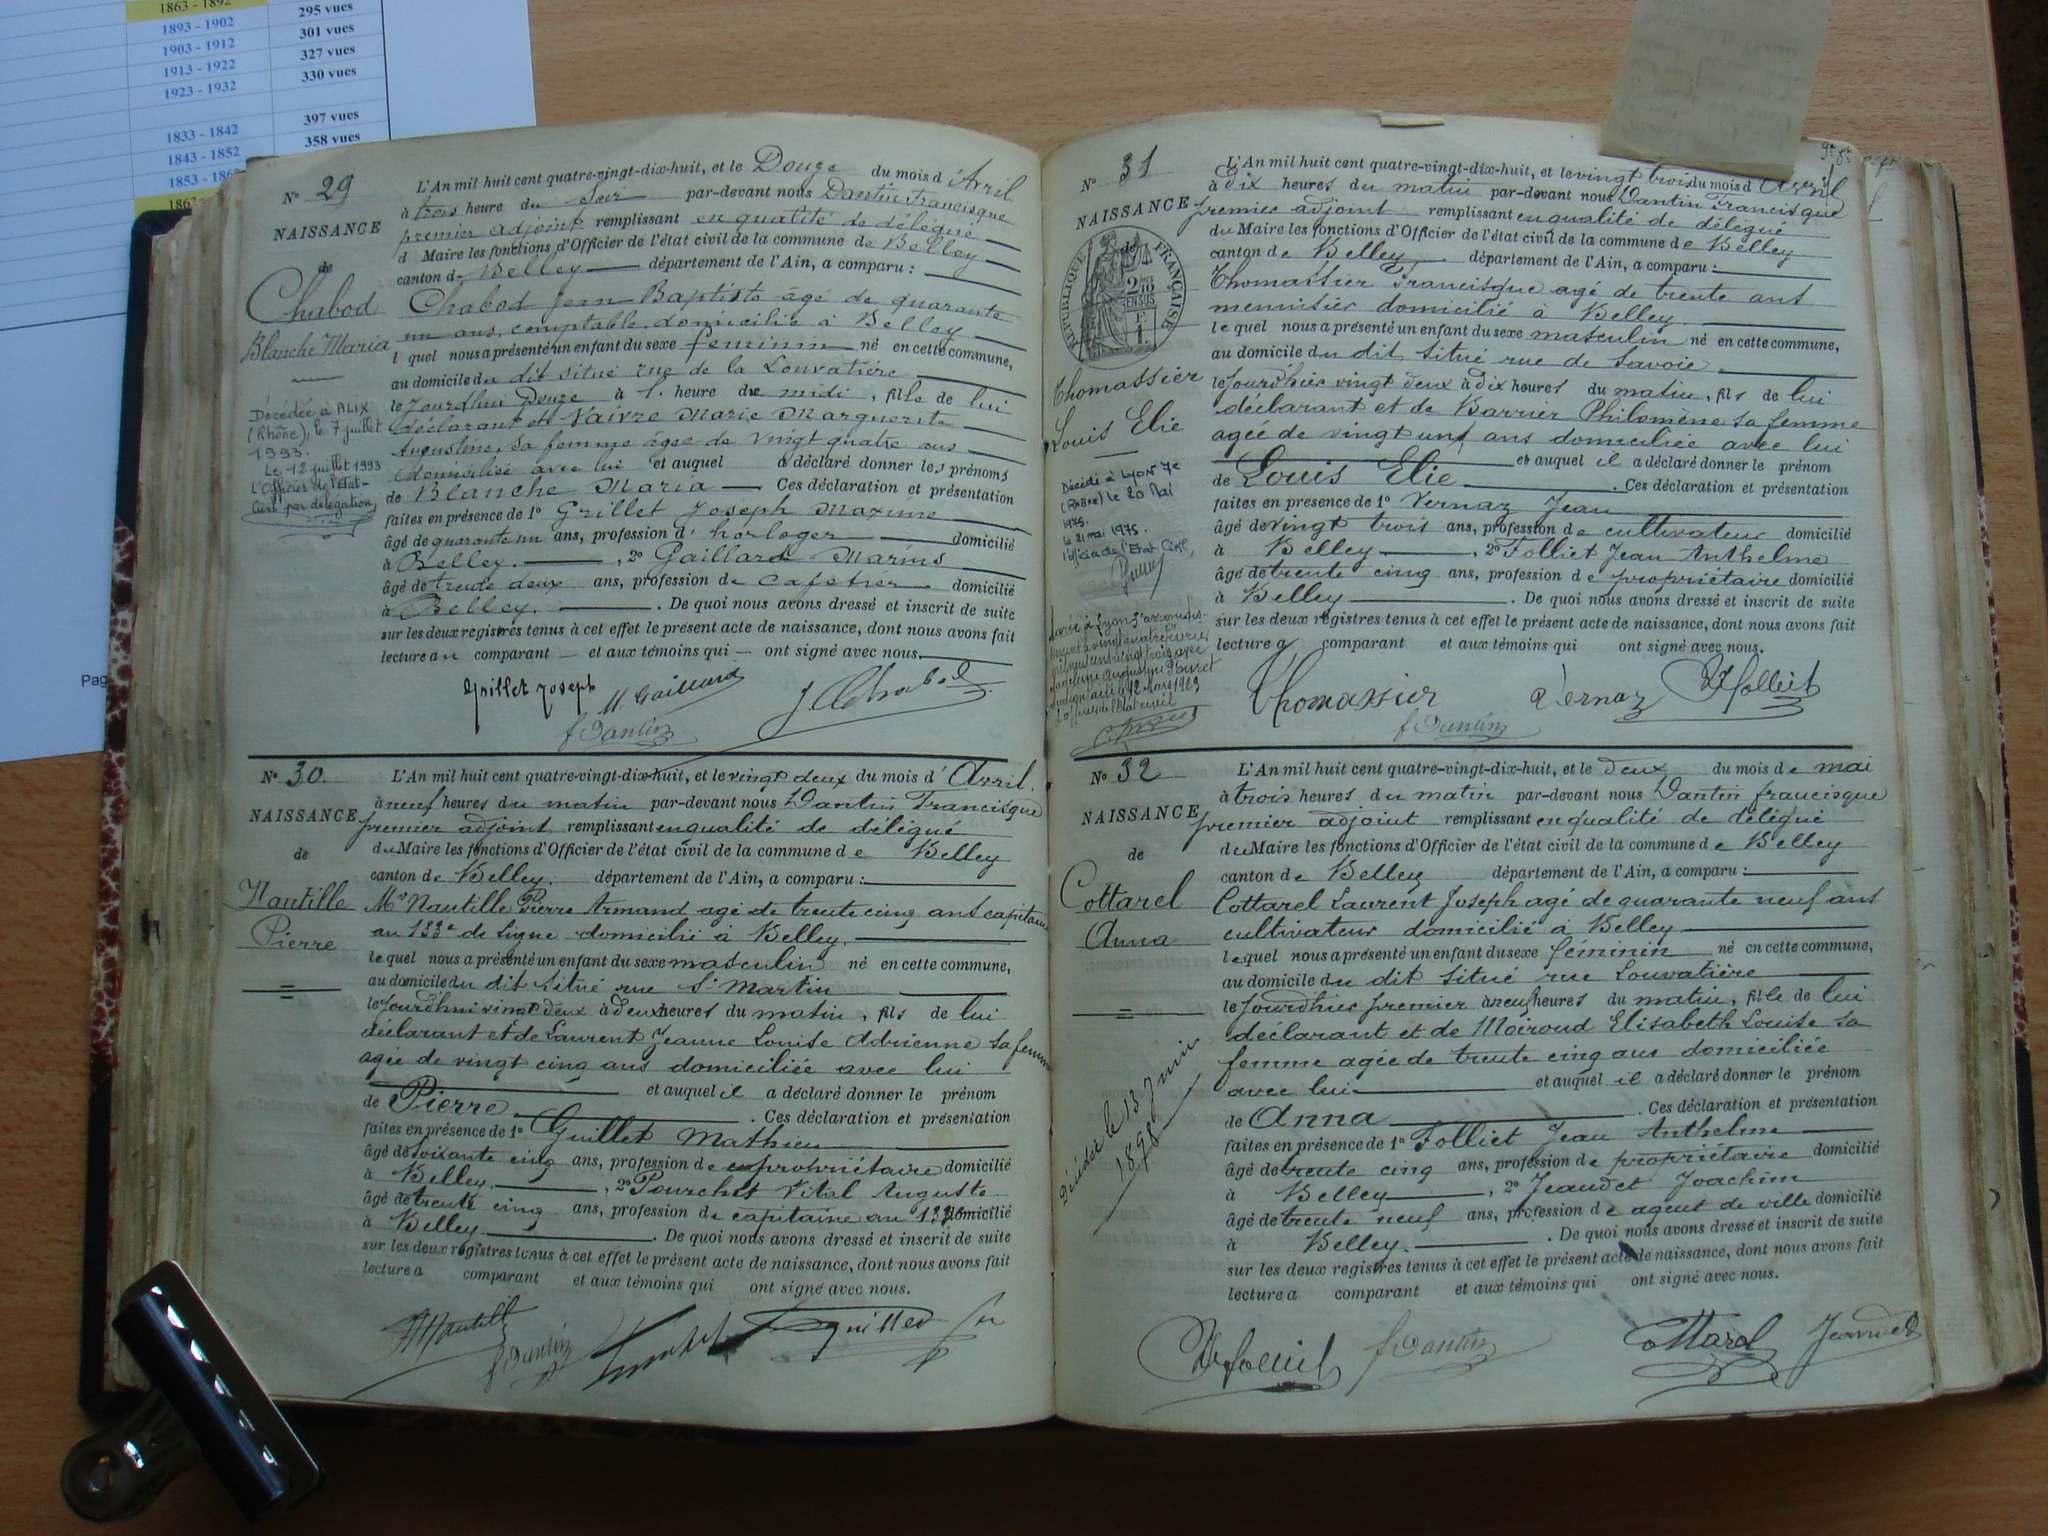 1863 - 1892
295 vues
1893 - 1902
301 vues
1903 - 1912
327 vues
1913 - 1922
330 vues
1923 - 1932
397 vues
1833 - 1842
358 vues
1843 - 1852
1853 - 186
Pag
N° 29
NAISSANCE
de
Chabod
Blanche Maria
Décédée à ALIX
(Rhône), le 7 juillet
1993.
Le 12 juillet 1993
L'Officier de l'Etat-
Civil par délégation,
L'An mil huit cent quatre-vingt-dix-huit, et le Douze du mois d'Avril
à trois heure du Soir par-devant nous Dantin Francisque
premier adjoint remplissant en qualité de délégué
d Maire les fonctions d'Officier de l'état civil de la commune de Belley
canton de Belley département de l'Ain, a comparu :
Chabod Jean Baptiste âgé de quarante
un ans, comptable, domicilié à Belley
l quel nous a présenté un enfant du sexe féminin né en cette commune,
au domicile du dit situé rue de la Louvatière
le Jourd'hui Douze à 1. heure du midi, fille de lui
déclarant et Vaivre Marie Marguerite
Augustine, sa femme âgée de vingt quatre ans
domiciliée avec lui et auquel a déclaré donner les prénoms
de Blanche Maria Ces déclaration et présentation
faites en présence de 1° Grillet Joseph Maxime
âgé de quarante un ans, profession d'horloger domicilié
à Belley. , 2° Gaillard Marius
âgé de trente deux ans, profession de cafetier domicilié
à Belley. . De quoi nous avons dressé et inscrit de suite
sur les deux registres tenus à cet effet le présent acte de naissance, dont nous avons fait
lecture au comparant et aux témoins qui ont signé avec nous.
Grillet Joseph M Gaillard J Chabod
f Dantin
N° 30
NAISSANCE
de
Nautille
Pierre
L'An mil huit cent quatre-vingt-dix-huit, et le vingt deux du mois d'Avril.
à neuf heures du matin par-devant nous Dantin Francisque
premier adjoint remplissant en qualité de délégué
du Maire les fonctions d'Officier de l'état civil de la commune de Belley
canton de Belley. département de l'Ain, a comparu :
Mr Nautille Pierre Armand agé de trente cinq ans capitaine
au 133e de Ligne domicilié à Belley.
le quel nous a présenté un enfant du sexe masculin né en cette commune,
au domicile du dit situé rue St Martin
le Jourd'hui vingt deux à deux heures du matin, fils de lui
déclarant et de Laurent Jeanne Louise Adrienne sa femme
agée de vingt cinq ans domiciliée avec lui
et auquel il a déclaré donner le prénom
de Pierre . Ces déclaration et présentation
faites en présence de 1° Guillet Mathieu
âgé de soixante cinq ans, profession de propriétaire domicilié
à Belley. , 2° Pourchet Vital Auguste
âgé de trente cinq ans, profession de capitaine au 133e domicilié
à Belley . De quoi nous avons dressé et inscrit de suite
sur les deux registres tenus à cet effet le présent acte de naissance, dont nous avons fait
lecture a comparant et aux témoins qui ont signé avec nous.
Nautille f Dantin Guillet
N° 31
NAISSANCE
de
RÉPUBLIQUE FRANÇAISE
Thomassier
Louis Elie
Décédé à LYON 7e
(Rhône) le 20 Mai
1975.
le 21 mai 1975.
l'officier de l'Etat Civil,
L'An mil huit cent quatre-vingt-dix-huit, et le vingt trois du mois d Avril
à dix heures du matin par-devant nous Dantin Francisque
premier adjoint remplissant en qualité de délégué
du Maire les fonctions d'Officier de l'état civil de la commune de Belley
canton de Belley département de l'Ain, a comparu :
Thomassier Francisque agé de trente ans
menuisier domicilié à Belley.
le quel nous a présenté un enfant du sexe masculin né en cette commune,
au domicile du dit situé rue de Savoie
le Jourd'hier vingt deux à dix heures du matin, fils de lui
déclarant et de Barrier Philomène sa femme
agée de vingt un ans domiciliée avec lui
et auquel il a déclaré donner le prénom
de Louis Elie . Ces déclaration et présentation
faites en présence de 1° Vernaz Jean
âgé de vingt trois ans, profession de cultivateur domicilié
à Belley , 2° Folliet Jean Anthelme
âgé de trente cinq ans, profession de propriétaire domicilié
à Belley . De quoi nous avons dressé et inscrit de suite
sur les deux registres tenus à cet effet le présent acte de naissance, dont nous avons fait
lecture a comparant et aux témoins qui ont signé avec nous.
Thomassier Vernaz Folliet
f Dantin
N° 32
NAISSANCE
de
Cottarel
Anna
Décédée le 13 Juin
1898
L'An mil huit cent quatre-vingt-dix-huit, et le deux du mois de mai
à trois heures du matin par-devant nous Dantin francisque
premier adjoint remplissant en qualité de délégué
du Maire les fonctions d'Officier de l'état civil de la commune de Belley
canton de Belley département de l'Ain, a comparu :
Cottarel Laurent Joseph agé de quarante neuf ans
cultivateur domicilié à Belley
le quel nous a présenté un enfant du sexe féminin né en cette commune,
au domicile du dit situé rue Louvatière
le Jourd'hier premier à neuf heures du matin, fille de lui
déclarant et de Moiroud Elisabeth Louise sa
femme agée de trente cinq ans domiciliée
avec lui et auquel il a déclaré donner le prénom
de Anna . Ces déclaration et présentation
faites en présence de 1° Folliet Jean Anthelme
âgé de trente cinq ans, profession de propriétaire domicilié
à Belley , 2° Jeandet Joachim
âgé de trente neuf ans, profession de agent de ville domicilié
à Belley. . De quoi nous avons dressé et inscrit de suite
sur les deux registres tenus à cet effet le présent acte de naissance, dont nous avons fait
lecture a comparant et aux témoins qui ont signé avec nous.
Folliet f Dantin Cottarel Jeandet